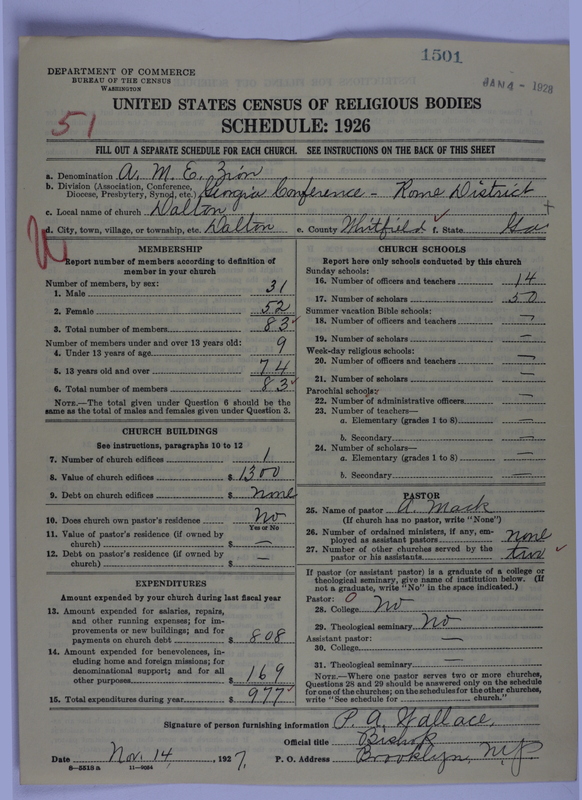 1501
DEPARTMENT OF COMMERCE
BUREAU OF THE CENSUS
WASHINGTON
JAN 4 - 1928
UNITED STATES CENSUS OF RELIGIOUS BODIES
SCHEDULE: 1926
51
FILL OUT A SEPARATE SCHEDULE FOR EACH CHURCH. SEE INSTRUCTIONS ON THE BACK OF THIS SHEET
a. Denomination A. M. E. Zion
b. Division (Association, Conference, Diocese, Presbytery, Synod, etc.) Georgia Conference - Rome District
c. Local name of church Dalton
d. City, town, village, or township, etc. Dalton e. County Whitfield f. State Ga
MEMBERSHIP
Report number of members according to definition of
member in your church
Number of members, by sex:
1. Male 31
2. Female 52
3. Total number of members 83
Number of members under and over 13 years old:
4. Under 13 years of age 9
5. 13 years old and over 74
6. Total number of members 83
NOTE.—The total given under Question 6 should be the
same as the total of males and females given under Question 3.
CHURCH BUILDINGS
See instructions, paragraphs 10 to 12
7. Number of church edifices 1
8. Value of church edifices $ 1300
9. Debt on church edifices $ none
10. Does church own pastor's residence No
Yes or No
11. Value of pastor's residence (if owned by
church) $ —
12. Debt on pastor's residence (if owned by
church) $ —
EXPENDITURES
Amount expended by church during last fiscal year
13. Amount expended for salaries, repairs,
and other running expenses; for im-
provements or new buildings; and for
payments on church debt $ 808
14. Amount expended for benevolences, in-
cluding home and foreign missions; for
denominational support; and for all
other purposes $ 169
15. Total expenditures during year $ 977
CHURCH SCHOOLS
Report here only schools conducted by this church
Sunday schools:
16. Number of officers and teachers 14
17. Number of scholars 50
Summer vacation Bible schools:
18. Number of officers and teachers —
19. Number of scholars —
Week-day religious schools:
20. Number of officers and teachers —
21. Number of scholars —
Parochial schools:
22. Number of administrative officers —
23. Number of teachers—
a. Elementary (grades 1 to 8) —
b. Secondary —
24. Number of scholars—
a. Elementary (grades 1 to 8) —
b. Secondary —
PASTOR
25. Name of pastor A. Mack
(If church has no pastor, write "None")
26. Number of ordained ministers, if any, em-
ployed as assistant pastors none
27. Number of other churches served by the
pastor or his assistants two
If pastor (or assistant pastor) is a graduate of a college or
theological seminary, give name of institution below. (If
not a graduate, write "No" in the space indicated.)
Pastor: 0
28. College No
29. Theological seminary No
Assistant pastor: —
30. College
31. Theological seminary —
NOTE.—Where one pastor serves two or more churches,
Questions 28 and 29 should be answered only on the schedule
for one of the churches; on the schedules for the other churches,
write "See schedule for church."
Signature of person furnishing information P. A. Wallace,
Official title Bishop
Date Nov. 14, 1927. P. O. Address Brooklyn, N.Y.
8—5518 a 11—9034